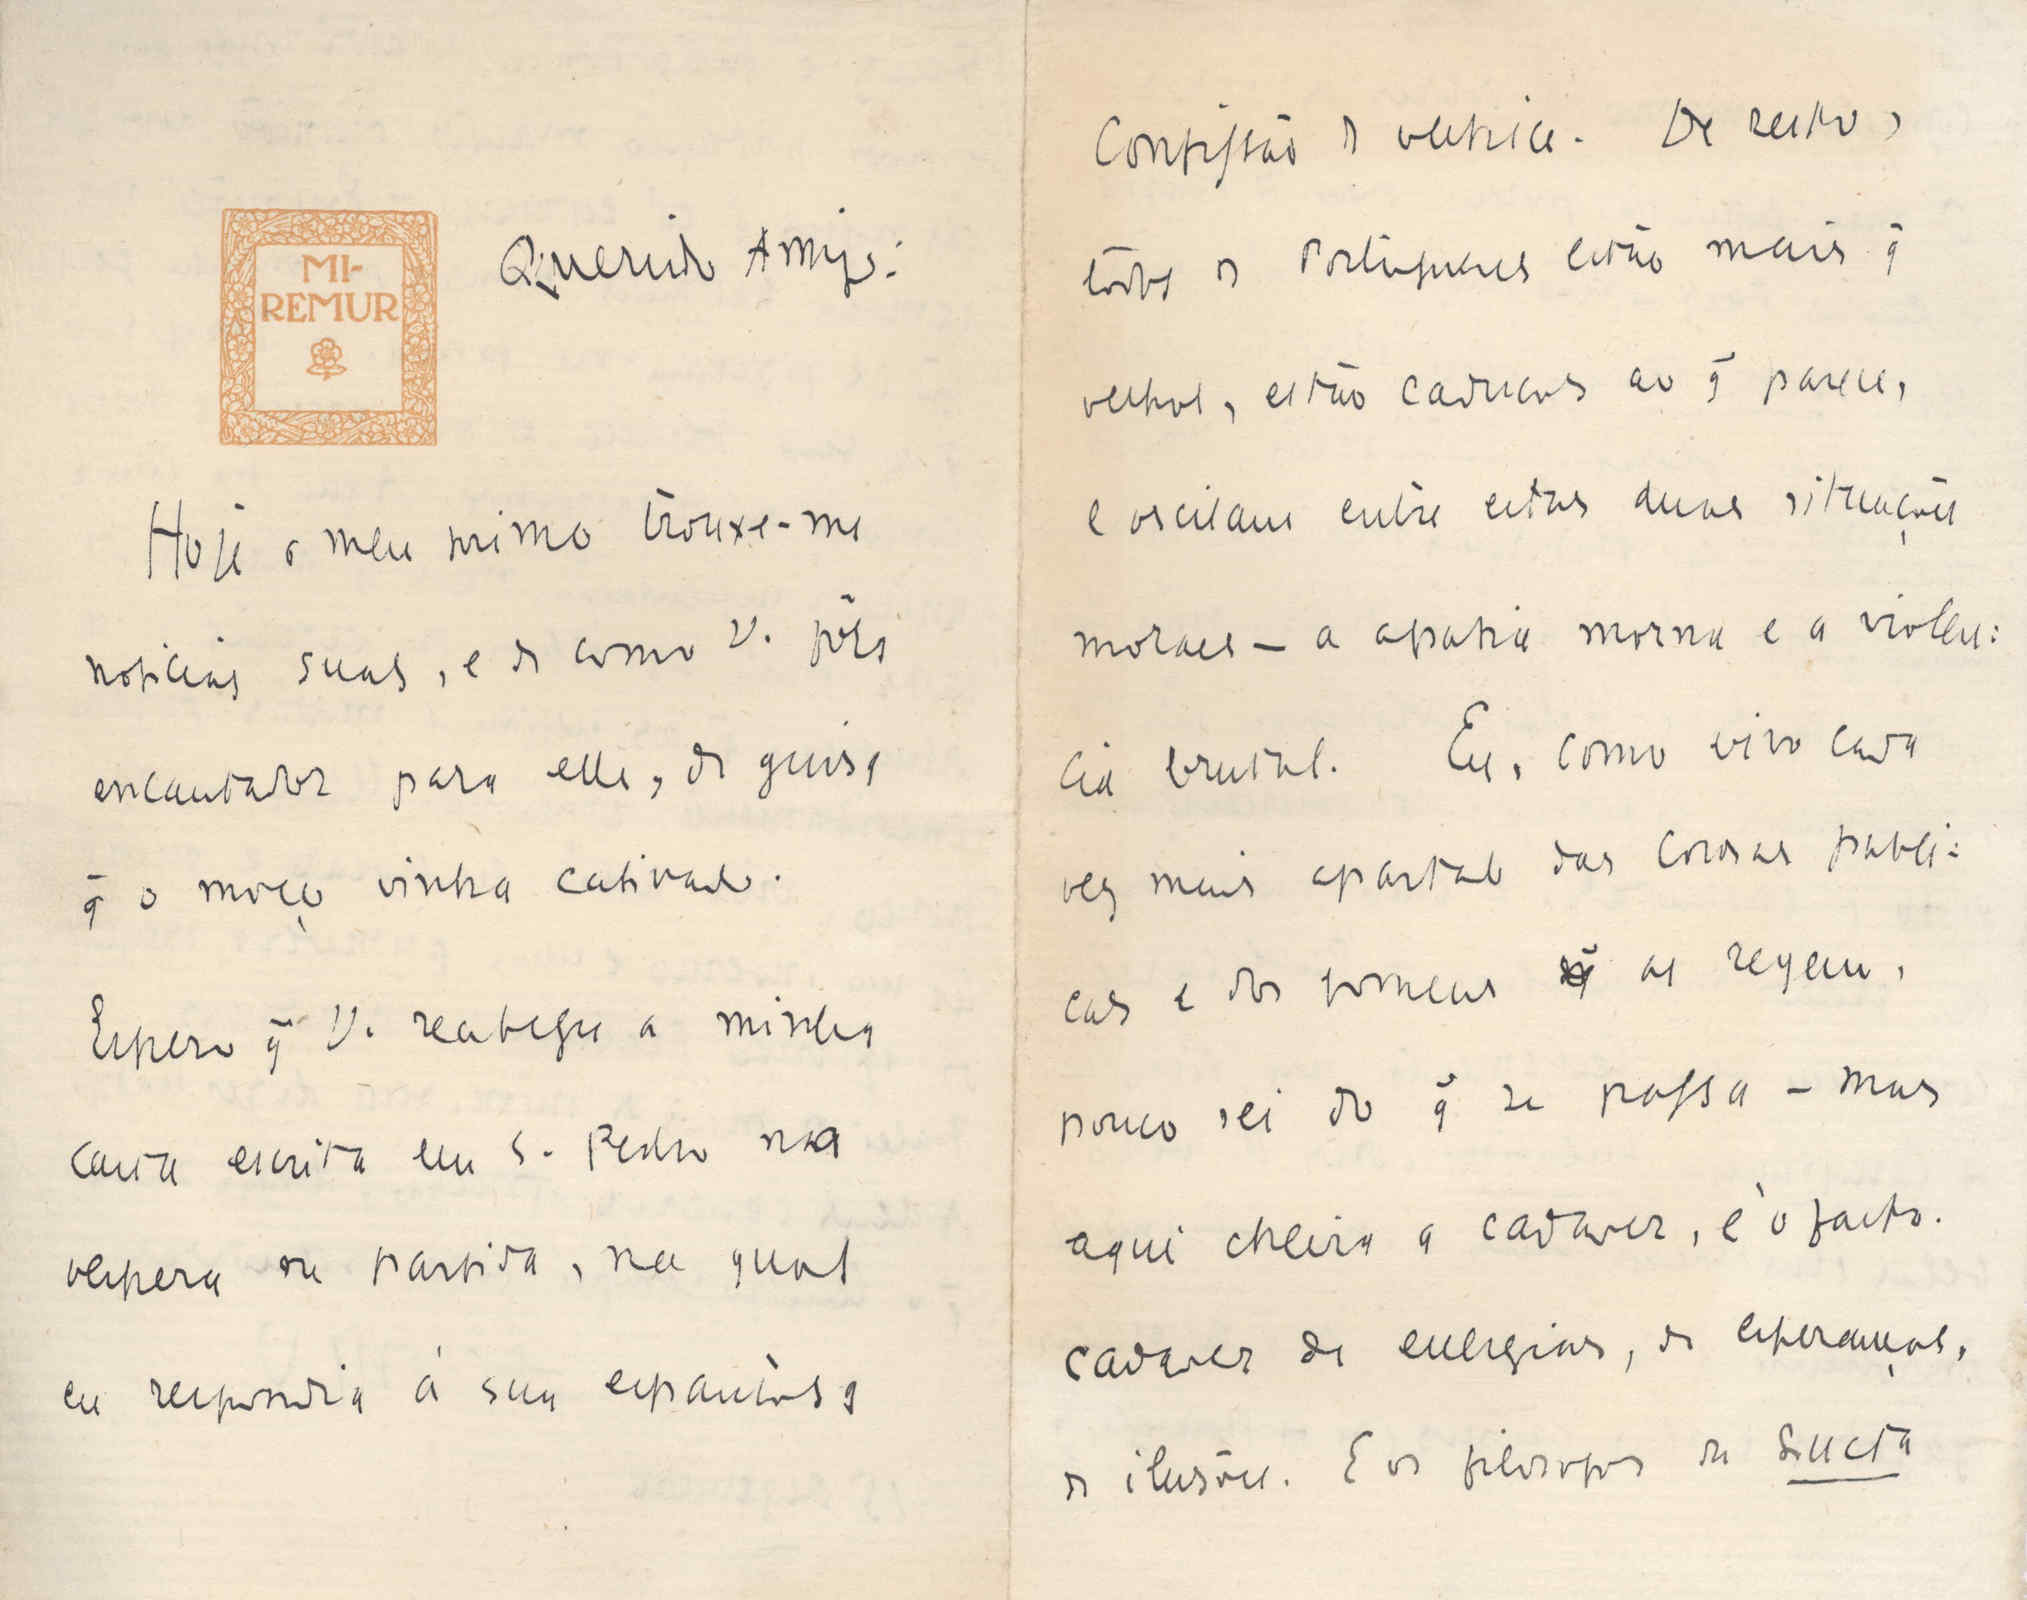 MI-
REMUR
Querido Amigo:
Hoje o meu primo trouxe-me
noticias suas, e de como V. fôra
encantador para elle, de guisa
q̃ o moço vinha cativado.
Espero q̃ V. recebesse a minha
carta escrita em S. Pedro na
vespera da partida, na qual
eu respondia á sua espantosa
Confissão de velhice. De resto,
todos os Portugueses estão mais q̃
velhos, estão caducos ao q̃ parece,
e oscilam entre estas duas situações
moraes – a apatia morna e a violen:
cia brutal. Eu, como vivo cada
vez mais apartado das Coisas publi:
cas e dos homens q̃ as regem,
pouco sei do q̃ se passa – mas
aqui cheira a cadaver, é o facto.
Cadaver de energias, de esperanças,
de ilusões. E os filosofos da Lucta